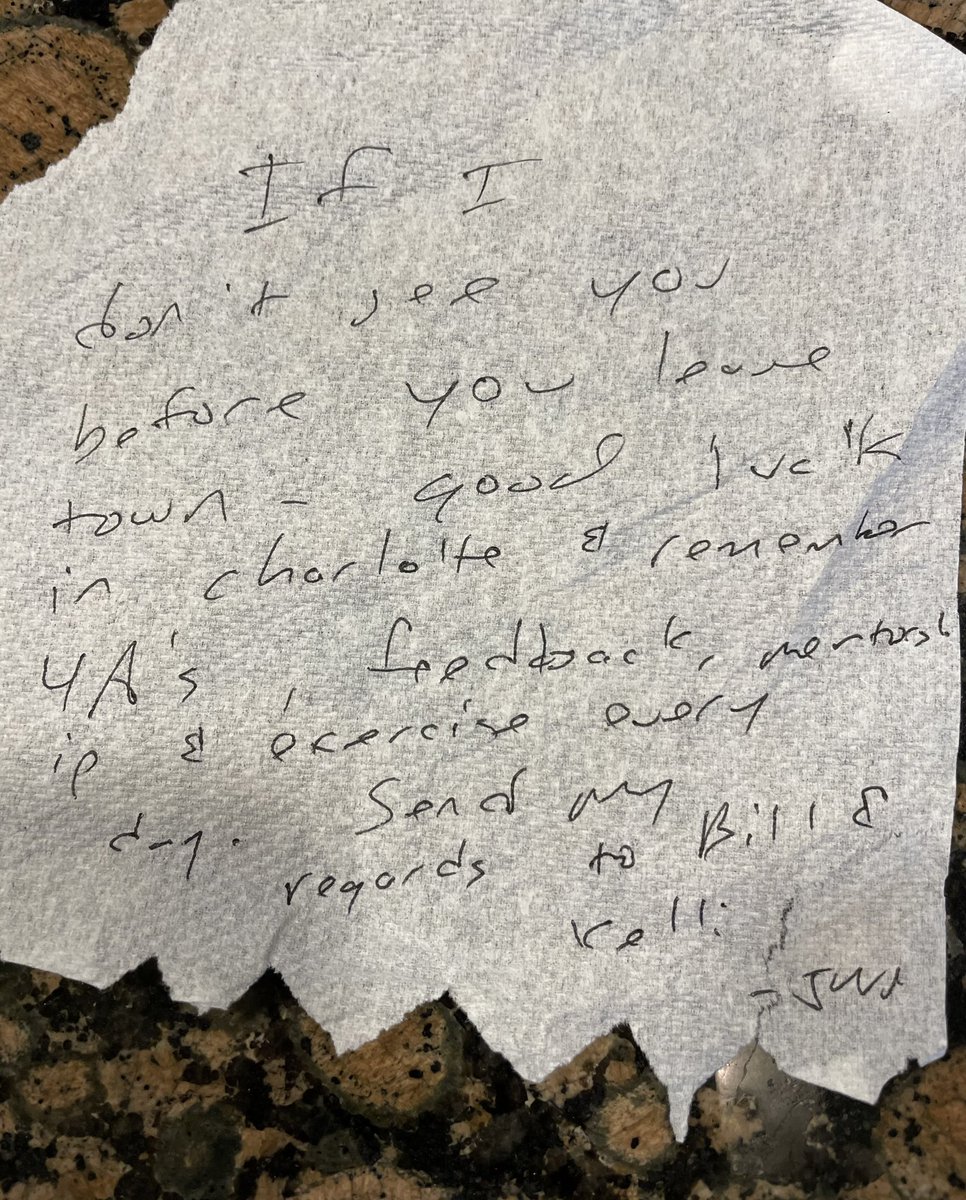 If I
don't see you
before you leave
town - good luck
in charlotte & remember
4A's, feedback, mentorsh
ip & exercise every
day. Send my
regards to Bill &
Kelli